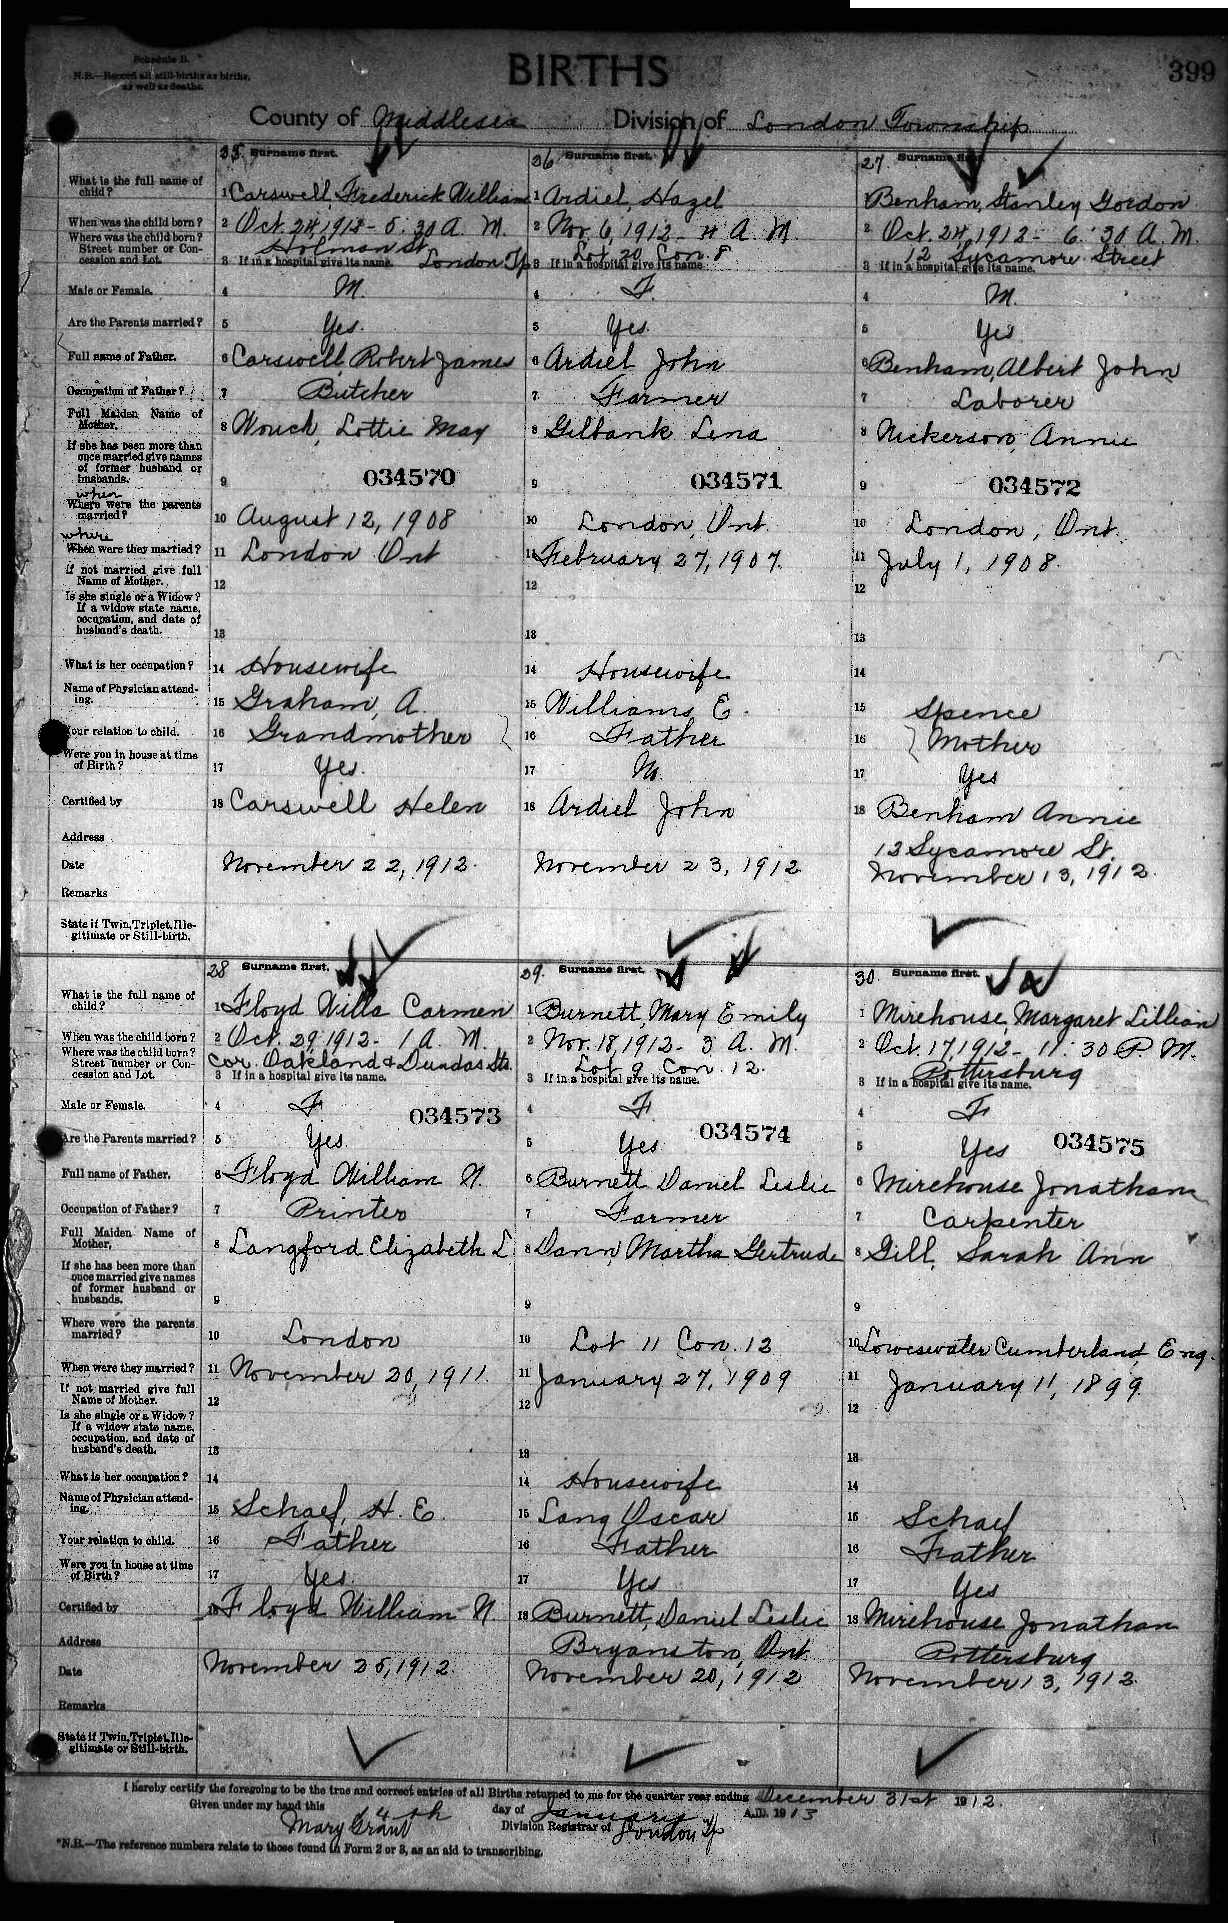 Schedule B.
N.B.—Record all still-births as births,
as well as deaths.
BIRTHS
399
County of Middlesex Division of London Township
25 Surname first.
26 Surname first.
27 Surname first.
What is the full name of child?
1 Carswell, Frederick William
1 Ardiel, Hazel
1 Benham, Stanley Gordon
When was the child born?
2 Oct. 24, 1912 - 5:30 A. M.
2 Nov. 6, 1912 - 4 A. M.
2 Oct. 24, 1912 - 6:30 A. M.
Where was the child born? Street number or Concession and Lot.
Holman St. London Tp
3 If in a hospital give its name.
Lot 20 Con. 8
3 If in a hospital give its name
12 Sycamore Street
3 If in a hospital give its name.
Male or Female.
4 M.
4 F.
4 M.
Are the Parents married?
5 Yes.
5 Yes.
5 Yes
Full name of Father.
6 Carswell, Robert James
6 Ardiel John
6 Benham, Albert John
Occupation of Father?
7 Butcher
7 Farmer
7 Laborer
Full Maiden Name of Mother.
8 Lottie May
8 Gilbank Lena
8 Nickerson, Annie
If she has been more than once married give names of former husband or husbands.
9 034570
9 034571
9 034572
when
Where were the parents married?
10 August 12, 1908
10 London, Ont.
10 London, Ont.
where
When were they married?
11 London Ont
11 February 27, 1907.
11 July 1, 1908.
If not married give full Name of Mother.
12
12
12
Is she single or a Widow? If a widow state name, occupation, and date of husband's death.
13
13
13
What is her occupation?
14 Housewife
14 Housewife
14
Name of Physician attending.
15 Graham, A.
15 Williams E.
15 Spence
Your relation to child.
16 Grandmother
16 Father
16 Mother
Were you in house at time of Birth?
17 Yes.
17 No.
17 Yes
Certified by
18 Carswell Helen
18 Ardiel John
18 Benham Annie
Address
12 Sycamore St.
Date
November 22, 1912.
November 23, 1912
November 13, 1912.
Remarks
State if Twin, Triplet, Illegitimate or Still-birth.
28 Surname first.
29. Surname first.
30. Surname first.
What is the full name of child?
1 Floyd Willa Carmen
1 Burnett, Mary Emily
1 Mirehouse, Margaret Lillian
When was the child born?
2 Oct. 29, 1912 - 1 A. M.
2 Nov. 18, 1912 - 3 A. M.
2 Oct. 17, 1912 - 11:30 P. M.
Where was the child born? Street number or Concession and Lot.
Cor. Oakland & Dundas Sts.
3 If in a hospital give its name.
Lot 9 Con. 12.
3 If in a hospital give its name.
Pottersburg
3 If in a hospital give its name.
Male or Female.
4 F 034573
4 F
4 F
Are the Parents married?
5 Yes.
5 Yes 034574
5 Yes 034575
Full name of Father.
6 Floyd William N.
6 Burnett Daniel Leslie
6 Mirehouse Jonathan
Occupation of Father?
7 Printer
7 Farmer
7 Carpenter
Full Maiden Name of Mother,
8 Langford Elizabeth L
8 Dann, Martha Gertrude
8 Gill, Sarah Ann
If she has been more than once married give names of former husband or husbands.
9
9
9
Where were the parents married?
10 London
10 Lot 11 Con. 12
10 Loweswater Cumberland, Eng.
When were they married?
11 November 20, 1911.
11 January 27, 1909
11 January 11, 1899.
If not married give full Name of Mother.
12
12
12
Is she single or a Widow? If a widow state name, occupation, and date of husband's death.
13
13
13
What is her occupation?
14
14 Housewife
14
Name of Physician attending.
15 Schaef, H. E.
15 Lang Oscar
15 Schaef
Your relation to child.
16 Father
16 Father
16 Father
Were you in house at time of Birth?
17 Yes.
17 Yes
17 Yes
Certified by
18 Floyd William N.
18 Burnett, Daniel Leslie
18 Mirehouse Jonathan
Address
Bryanston, Ont.
Pottersburg
Date
November 25, 1912.
November 20, 1912
November 13, 1912.
Remarks
State if Twin, Triplet, Illegitimate or Still-birth.
I hereby certify the foregoing to be the true and correct entries of all Births returned to me for the quarter year ending December 31st 1912.
Given under my hand this 14th day of January A.D. 1913
Mary Grant Division Registrar of London Tp
*N.B.—The reference numbers relate to those found in Form 2 or 3, as an aid to transcribing.